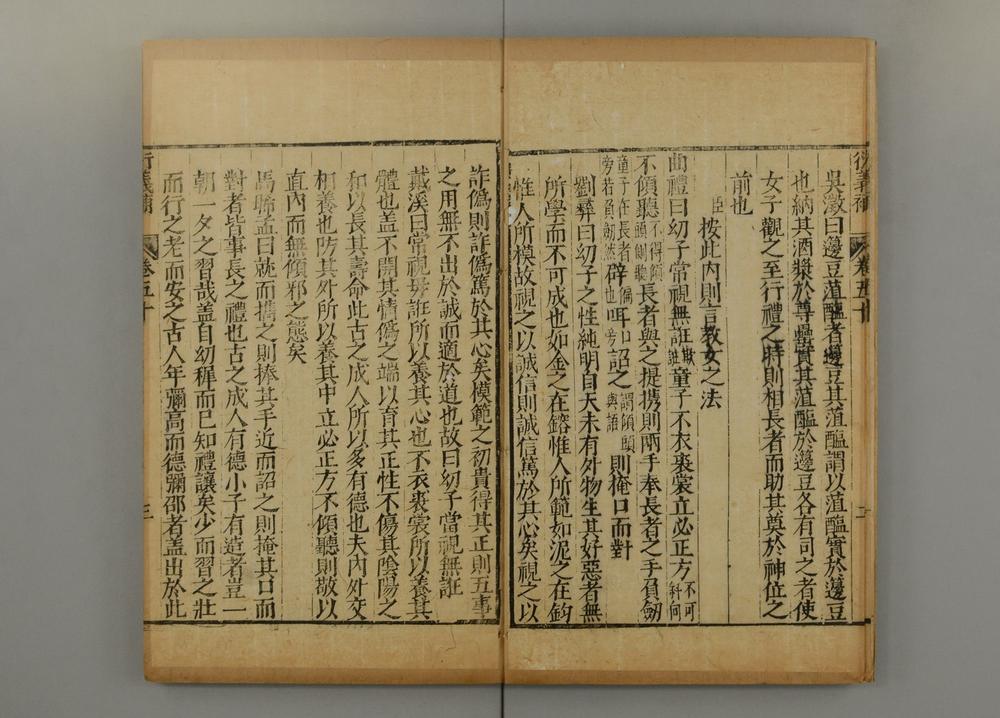 衍義補 卷五十 二
吳澂曰籩豆菹醢者籩豆其菹醢謂以菹醢實於籩豆
也納其酒漿於尊罍實其菹醢於籩豆各有司之者使
女子觀之至行禮之時則相長者而助其奠於神位之
前也
臣按此內則言教女之法
曲禮曰幼子常視無誑欺誑童子不衣裘裳立必正方不可斜向
不傾聽不得傾頭側聽長者與之提攜則兩手奉長者之手負劒
童子在長者旁若負劒然辟偏也咡口旁詔之謂傾頭與語則掩口而對
劉彝曰幼子之性純明自天未有外物生其好惡者無
所學而不可成也如金之在鎔惟人所範如泥之在鈞
惟人所模故視之以誠信則誠信篤於其心矣視之以
詐偽則詐偽篤於其心矣模範之初貴得其正則五事
之用無不出於誠而適於道也故曰幼子當視無誑
戴溪曰常視毋誑所以養其心也不衣裘裳所以養其
體也盖不開其情偽之端以育其正性不傷其陰陽之
和以長其壽命此古之成人所以多有德也夫內外交
相養也防其外所以養其中立必正方不傾聽則敬以
直內而無傾邪之態矣
馬晞孟曰就而攜之則捧其手近而詔之則掩其口而
對者皆事長之禮也古之成人有德小子有造者豈一
朝一夕之習哉盖自幼穉而已知禮讓矣少而習之壯
而行之老而安之古人年彌高而德彌邵者盖出於此
衍義補 卷五十 三